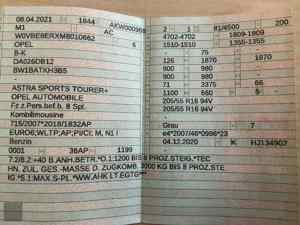 08.04.2021 1844 AKW000968
M1 AC
W0VBE8ERXM8010662 6
OPEL
B-K
DA026DB12
BW1BATKH3B5
ASTRA SPORTS TOURER+
OPEL AUTOMOBILE
Fz.z.Pers.bef.b. 8 Spl.
Kombilimousine
715/2007*2018/1832AP
EURO6;WLTP;AP;PI/CI; M, N1 I
Benzin
0001 36AP 1199
2 2 #1/6500 200
4702-4702 1809-1809
1510-1510 1355-1355
- 75
126 1870 1870
980 900
980 900
71 3375 66
1100 650 5 -
205/55 R16 94V
205/55 R16 94V
- -
Grau 7
04.12.2020 K HJ2134902
7.2/8.2:+40 B.ANH.BETR.*O.1:1200 BIS 8 PROZ.STEIG.*TEC
HN. ZUL. GES.-MASSE D. ZUGKOMB. KG BIS 8 PROZ.STE
IG.*S.1:MAX.S-PL.*WW.AHK LT.EGTG***